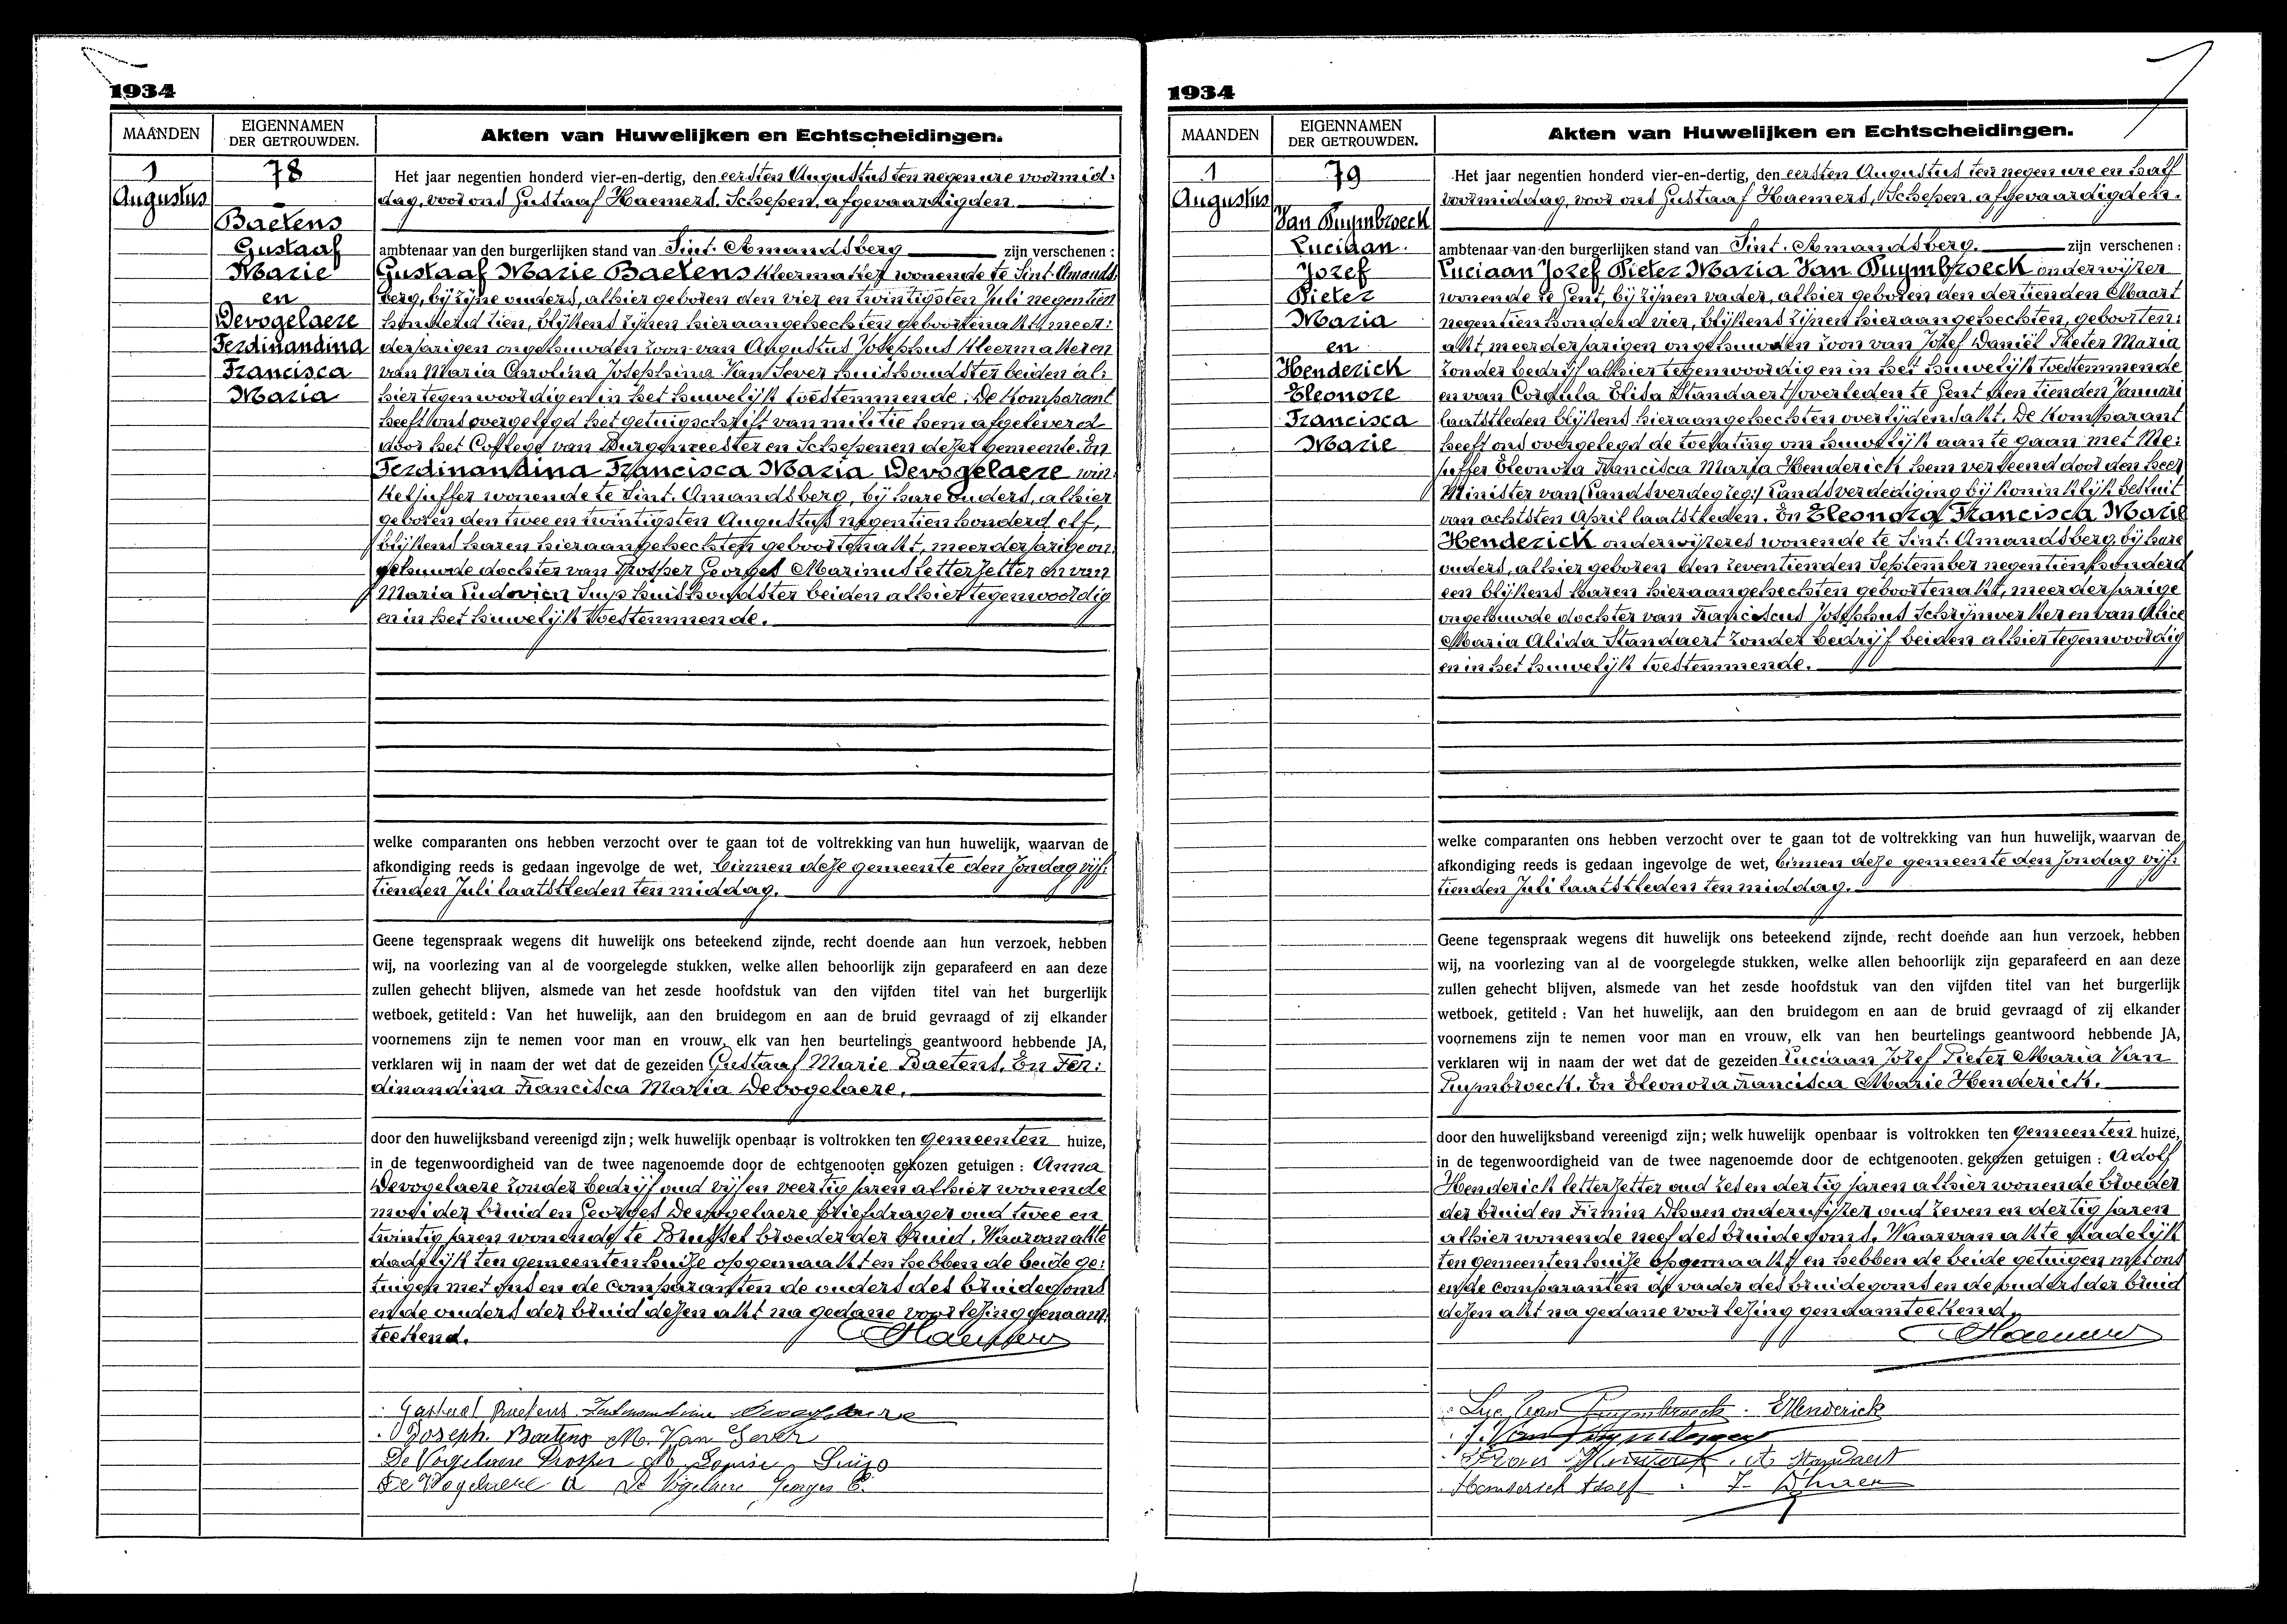 1934
MAANDEN
EIGENNAMEN
DER GETROUWDEN.
Akten van Huwelijken en Echtscheidingen.
1
Augustus
78
Baetens
Gustaaf
Marie
en
Devogelaere
Ferdinandina
Francisca
Maria
Het jaar negentien honderd vier-en-dertig, den eersten Augustus ten negen ure voormid:
dag, voor ons Gustaaf Haemers, Schepen, afgevaardigden
ambtenaar van den burgerlijken stand van Sint-Amandsberg zijn verschenen :
Gustaaf Marie Baetens kleermaker wonende te Sint-Amands
berg, bij zijne ouders, alhier geboren den vier en twintigsten Juli negentien
honderd tien, blijkens zijnen hieraangehechten geboortenakt, meer:
derjarigen ongehuwden zoon van Augustus Josephus kleermaker en
van Maria Carolina Josephina Van Sever huishoudster beiden al:
hier tegenwoordig en in het huwelijk toestemmende. De komparant
heeft ons overgelegd het getuigschrift van militie hem afgeleverd
door het College van Burgemeester en Schepenen dezer gemeente. En
Ferdinandina Francisca Maria Devogelaere win:
keljuffer wonende te Sint-Amandsberg, bij hare ouders, alhier
geboren den twee en twintigsten Augustus negentien honderd elf,
blijkens haren hieraangehechten geboortenakt, meerderjarige on:
gehuwde dochter van Prosper Georges Marinus letterzetter en van
Maria Ludovica Suys huishoudster beiden alhier tegenwoordig
en in het huwelijk toestemmende.
welke comparanten ons hebben verzocht over te gaan tot de voltrekking van hun huwelijk, waarvan de
afkondiging reeds is gedaan ingevolge de wet, binnen deze gemeente den Zondag vijf:
tienden Juli laatstleden ten middag.
Geene tegenspraak wegens dit huwelijk ons beteekend zijnde, recht doende aan hun verzoek, hebben
wij, na voorlezing van al de voorgelegde stukken, welke allen behoorlijk zijn geparafeerd en aan deze
zullen gehecht blijven, alsmede van het zesde hoofdstuk van den vijfden titel van het burgerlijk
wetboek, getiteld : Van het huwelijk, aan den bruidegom en aan de bruid gevraagd of zij elkander
voornemens zijn te nemen voor man en vrouw, elk van hen beurtelings geantwoord hebbende JA,
verklaren wij in naam der wet dat de gezeiden Gustaaf Marie Baetens. En Fer:
dinandina Francisca Maria Devogelaere.
door den huwelijksband vereenigd zijn ; welk huwelijk openbaar is voltrokken ten gemeenten huize,
in de tegenwoordigheid van de twee nagenoemde door de echtgenooten gekozen getuigen : Anna
Devogelaere zonder bedrijf oud vijf en veertig jaren alhier wonende
moei der bruid en Georges Devogelaere briefdrager oud twee en
twintig jaren wonende te Brussel broeder der bruid. Waarvan akte
dadelijk ten gemeentenhuize opgemaakt en hebben de beide ge:
tuigen met ons en de comparanten de ouders des bruidegoms
en de ouders der bruid dezen akt na gedane voorlezing genaam:
teekend. Haemers
Gustaaf Baetens Ferdinandina Devogelaere
Joseph. Baetens M. Van Sever
De Vogelaere Prosper M Louisa Suijs
De Vogelaere A De Vogelaere Georges C.
1934
MAANDEN
EIGENNAMEN
DER GETROUWDEN.
Akten van Huwelijken en Echtscheidingen.
1
Augustus
79
Van Puymbroeck
Luciaan.
Jozef
Pieter
Maria
en
Henderick
Eleonore
Francisca
Marie
Het jaar negentien honderd vier-en-dertig, den eersten Augustus ten negen ure en half
voormiddag, voor ons Gustaaf Haemers, Schepen, afgevaardigden.
ambtenaar van den burgerlijken stand van Sint-Amandsberg. zijn verschenen :
Luciaan Jozef Pieter Maria Van Puymbroeck onderwijzer
wonende te Gent, bij zijnen vader, alhier geboren den dertienden Maart
negentienhonderd vier, blijkens zijnen hieraangehechten, geboorten:
akt, meerderjarigen ongehuwden zoon van Jozef Daniël Pieter Maria
zonder bedrijf alhier tegenwoordig en in het huwelijk toestemmende
en van Cordula Elisa Standaert overleden te Gent den tienden Januari
laatstleden blijkens hieraangehechten overlijdensakt. De komparant
heeft ons overgelegd de toelating om huwelijk aan te gaan met Me:
juffer Eleonora Francisca Maria Henderick hem verleend door den heer
Minister van (Landsverdegzeg:) Landsverdediging bij koninklijk besluit
van achtsten April laatstleden. En Eleonora Francisca Marie
Henderick onderwijzeres wonende te Sint-Amandsberg, bij hare
ouders, alhier geboren den zeventienden September negentienhonderd
een blijkens haren hieraangehechten geboortenakt, meerderjarige
ongehuwde dochter van Franciscus Josephus schrijnwerker en van Alice
Maria Alida Standaert zonder bedrijf beiden alhier tegenwoordig
en in het huwelijk toestemmende.
welke comparanten ons hebben verzocht over te gaan tot de voltrekking van hun huwelijk, waarvan de
afkondiging reeds is gedaan ingevolge de wet, binnen deze gemeente den Zondag vijf:
tienden Juli laatstleden ten middag.
Geene tegenspraak wegens dit huwelijk ons beteekend zijnde, recht doende aan hun verzoek, hebben
wij, na voorlezing van al de voorgelegde stukken, welke allen behoorlijk zijn geparafeerd en aan deze
zullen gehecht blijven, alsmede van het zesde hoofdstuk van den vijfden titel van het burgerlijk
wetboek, getiteld : Van het huwelijk, aan den bruidegom en aan de bruid gevraagd of zij elkander
voornemens zijn te nemen voor man en vrouw, elk van hen beurtelings geantwoord hebbende JA,
verklaren wij in naam der wet dat de gezeiden Luciaan Jozef Pieter Maria Van
Puymbroeck. En Eleonora Francisca Marie Henderick.
door den huwelijksband vereenigd zijn ; welk huwelijk openbaar is voltrokken ten gemeenten huize,
in de tegenwoordigheid van de twee nagenoemde door de echtgenooten. gekozen getuigen : Adolf
Henderick letterzetter oud zes en dertig jaren alhier wonende broeder
der bruid en Firmin Dhaen onderwijzer oud zeven en dertig jaren
alhier wonende neef des bruidegoms. Waarvan akte dadelijk
ten gemeentenhuize opgemaakt en hebben de beide getuigen met ons
en de comparanten de vader des bruidegoms en de ouders der bruid
dezen akt na gedane voorlezing genaamteekend.
Haemers
Luc Van Puymbroeck. E Henderick
J. Van Puymbroeck
Frans Henderick. A. Standaert
Henderick Adolf. F. Dhaen